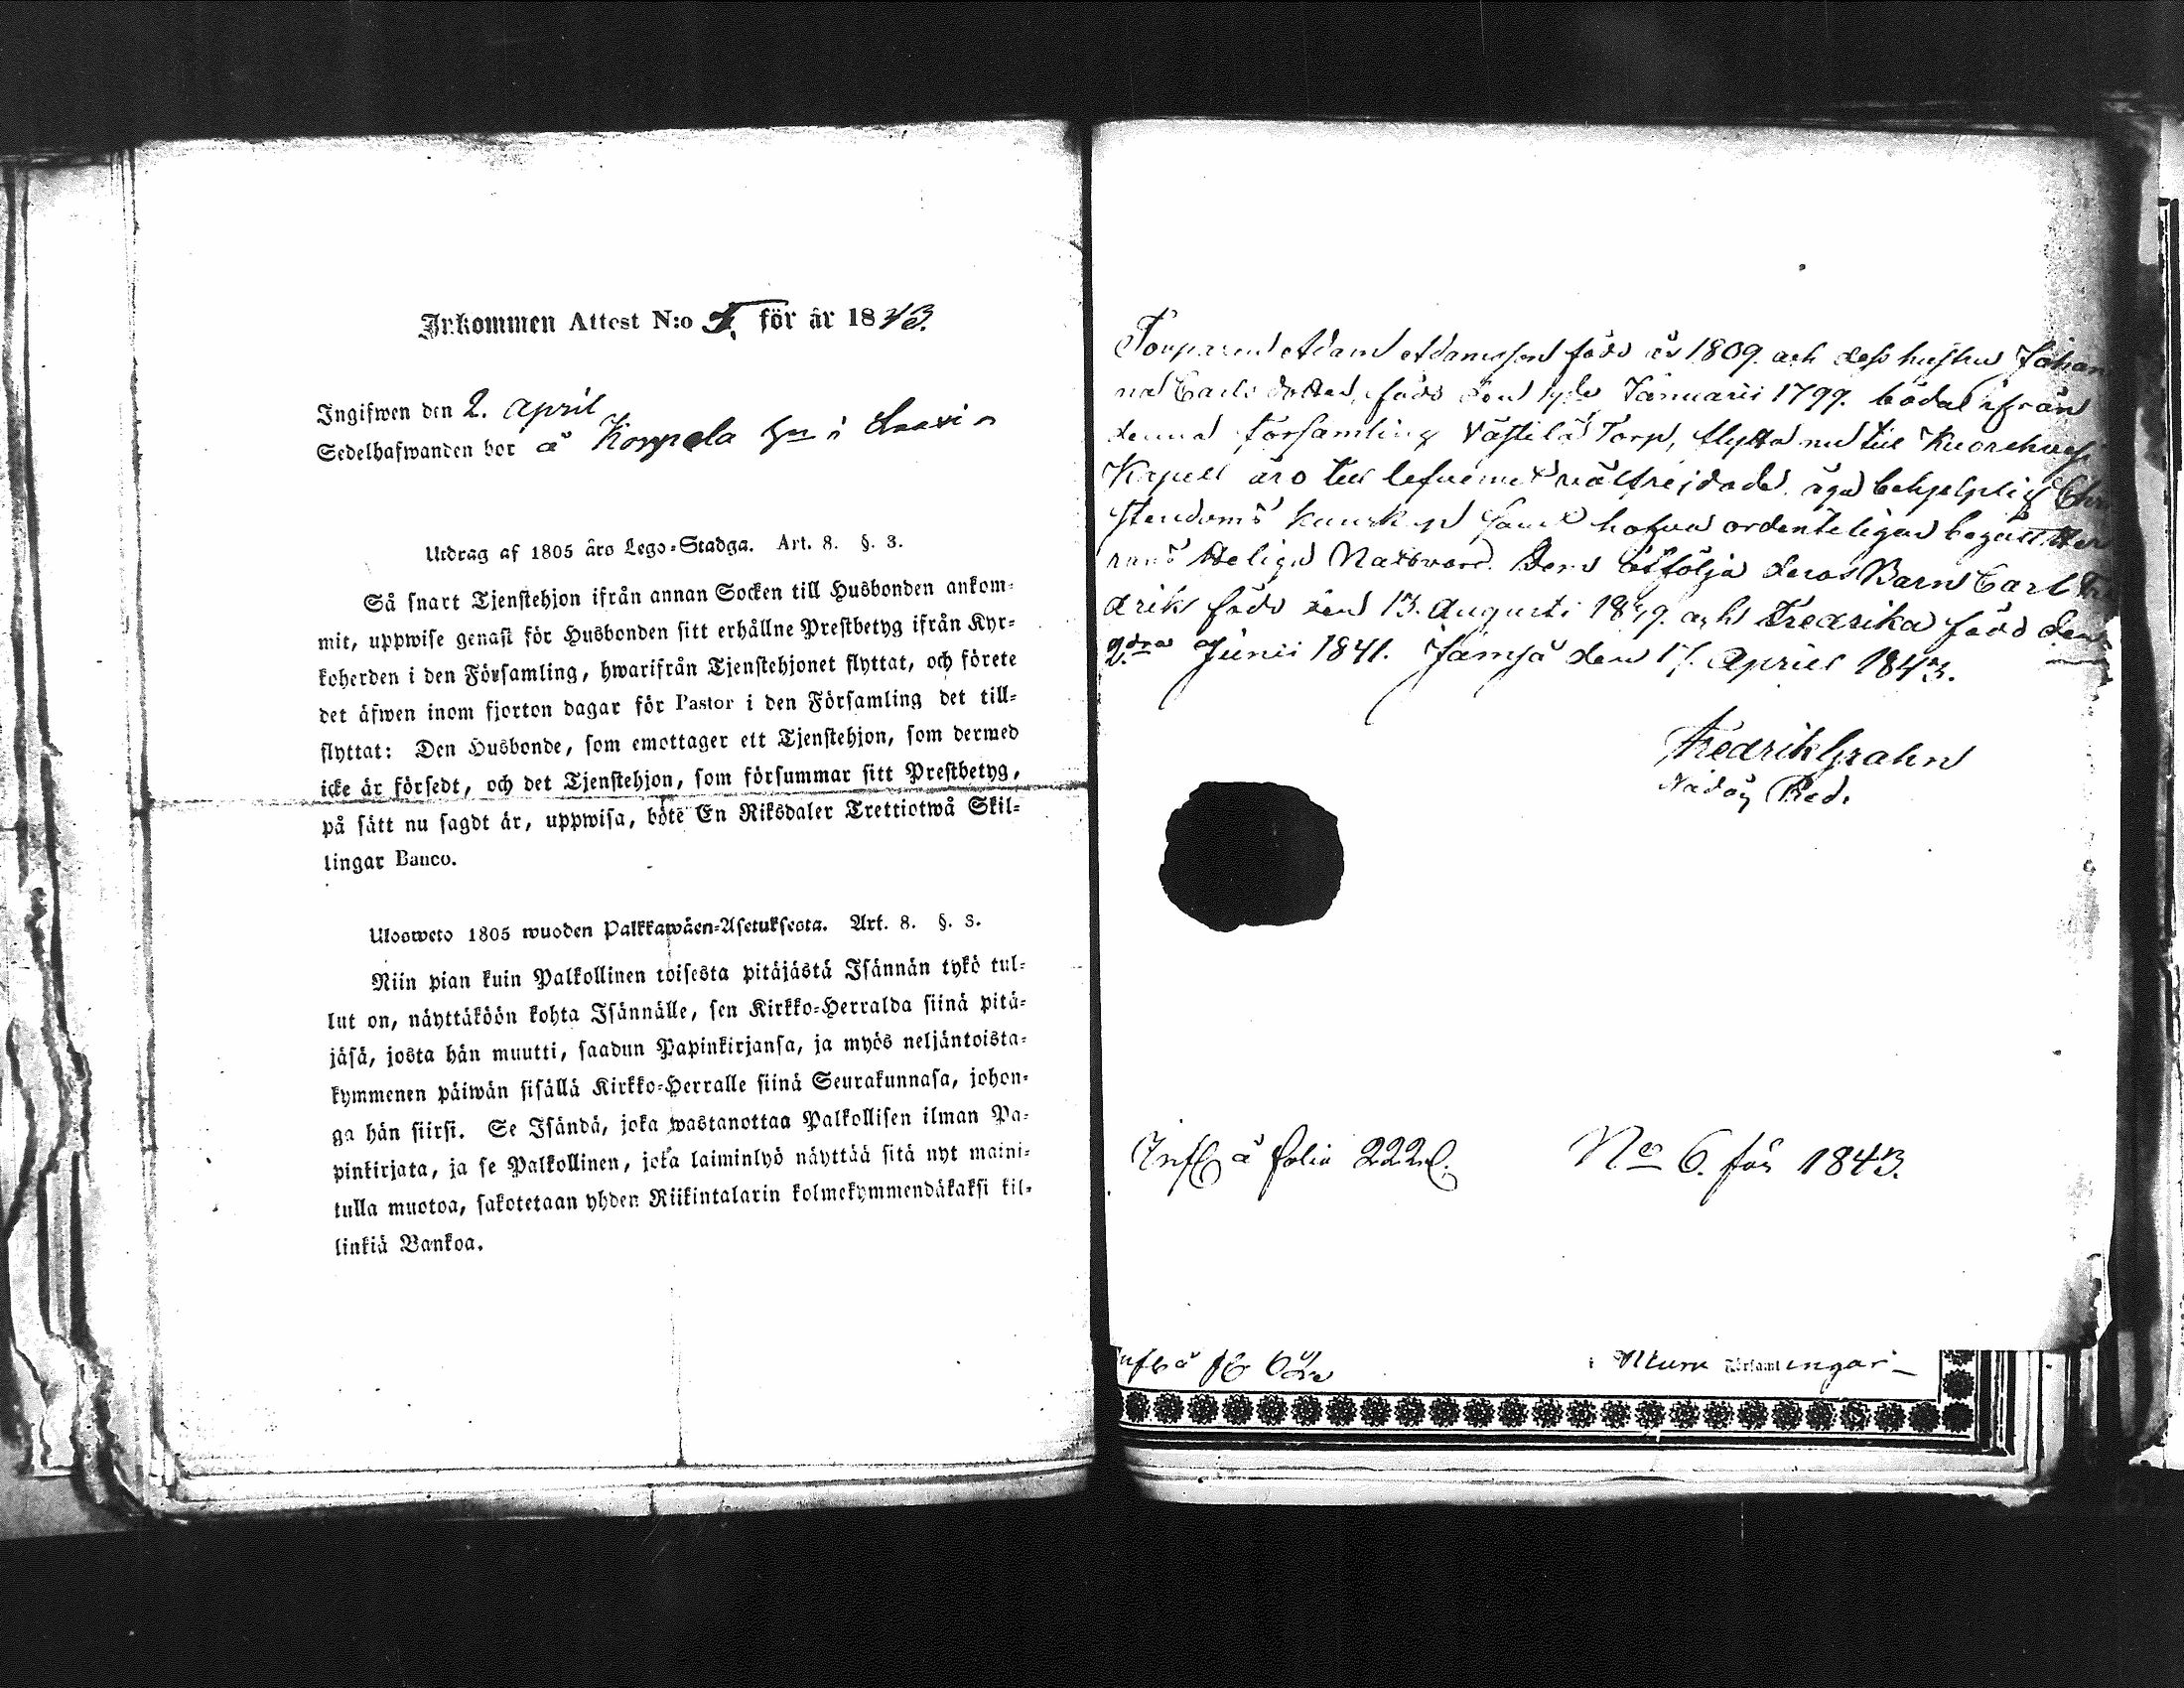 Inkommen Attest N:o 5. för år 1843.
Ingifwen den 2. April
Sedelhafwanden bor å Korppela
Utdrag af 1805 års Lego-Stadga. Art. 8. §. 3.
Så snart Tjenstehjon ifrån annan Socken till Husbonden ankom-
mit, uppwise genast för Husbonden sitt erhållne Prestbetyg ifrån Kyr-
koherden i den Församling, hwarifrån Tjenstehjonet flyttat, och förete
det äfwen inom fjorton dagar för Pastor i den Församling det till-
flyttat: Den Husbonde, som emottager ett Tjenstehjon, som dermed
icke är försedt, och det Tjenstehjon, som försummar sitt Prestbetyg,
på sätt nu sagdt är, uppwisa, böte En Riksdaler Trettiotwå Skil-
lingar Banco.
Ulosweto 1805 wuoden Palkkawäen-Asetuksesta. Art. 8. §. 3.
Niin pian kuin Palkollinen toisesta pitäjästä Isännän tykö tul-
lut on, näyttäköön kohta Isännälle, sen Kirkko-Herralda siinä pitä-
jäsä, josta hän muutti, saadun Papinkirjansa, ja myös neljäntoista-
kymmenen päiwän sisällä Kirkko-Herralle siinä Seurakunnasa, johon-
ga hän siirsi. Se Isändä, joka wastanottaa Palkollisen ilman Pa-
pinkirjata, ja se Palkollinen, joka laiminlyö näyttää sitä nyt maini-
tulla muotoa, sakotetaan yhden Riikintalarin kolmekymmendäkaksi kil-
linkiä Bankoa.
Torparen Adam Adamsson född år 1809. och dess hustru Johan
na Carls dotter, född den Januarii 1799. båda ifrån
denna församling Västilä Torp, flytta nu till Kuorehvesi
Kapell äro till lefvernet välfrejdade, äga behjelplig Chri
stendoms kunskap samt hafva ordenteligen begått Her
rans Heliga Nattvard. Dem åtfölja deras Barn Carl Fre
drik född den 13. Augusti 1839. och Fredrika född den
2:dra Junii 1841. Jämsä den 17. April 1843.
Fredrik Grahn
Infl å folio 222
No 6. för 1843.